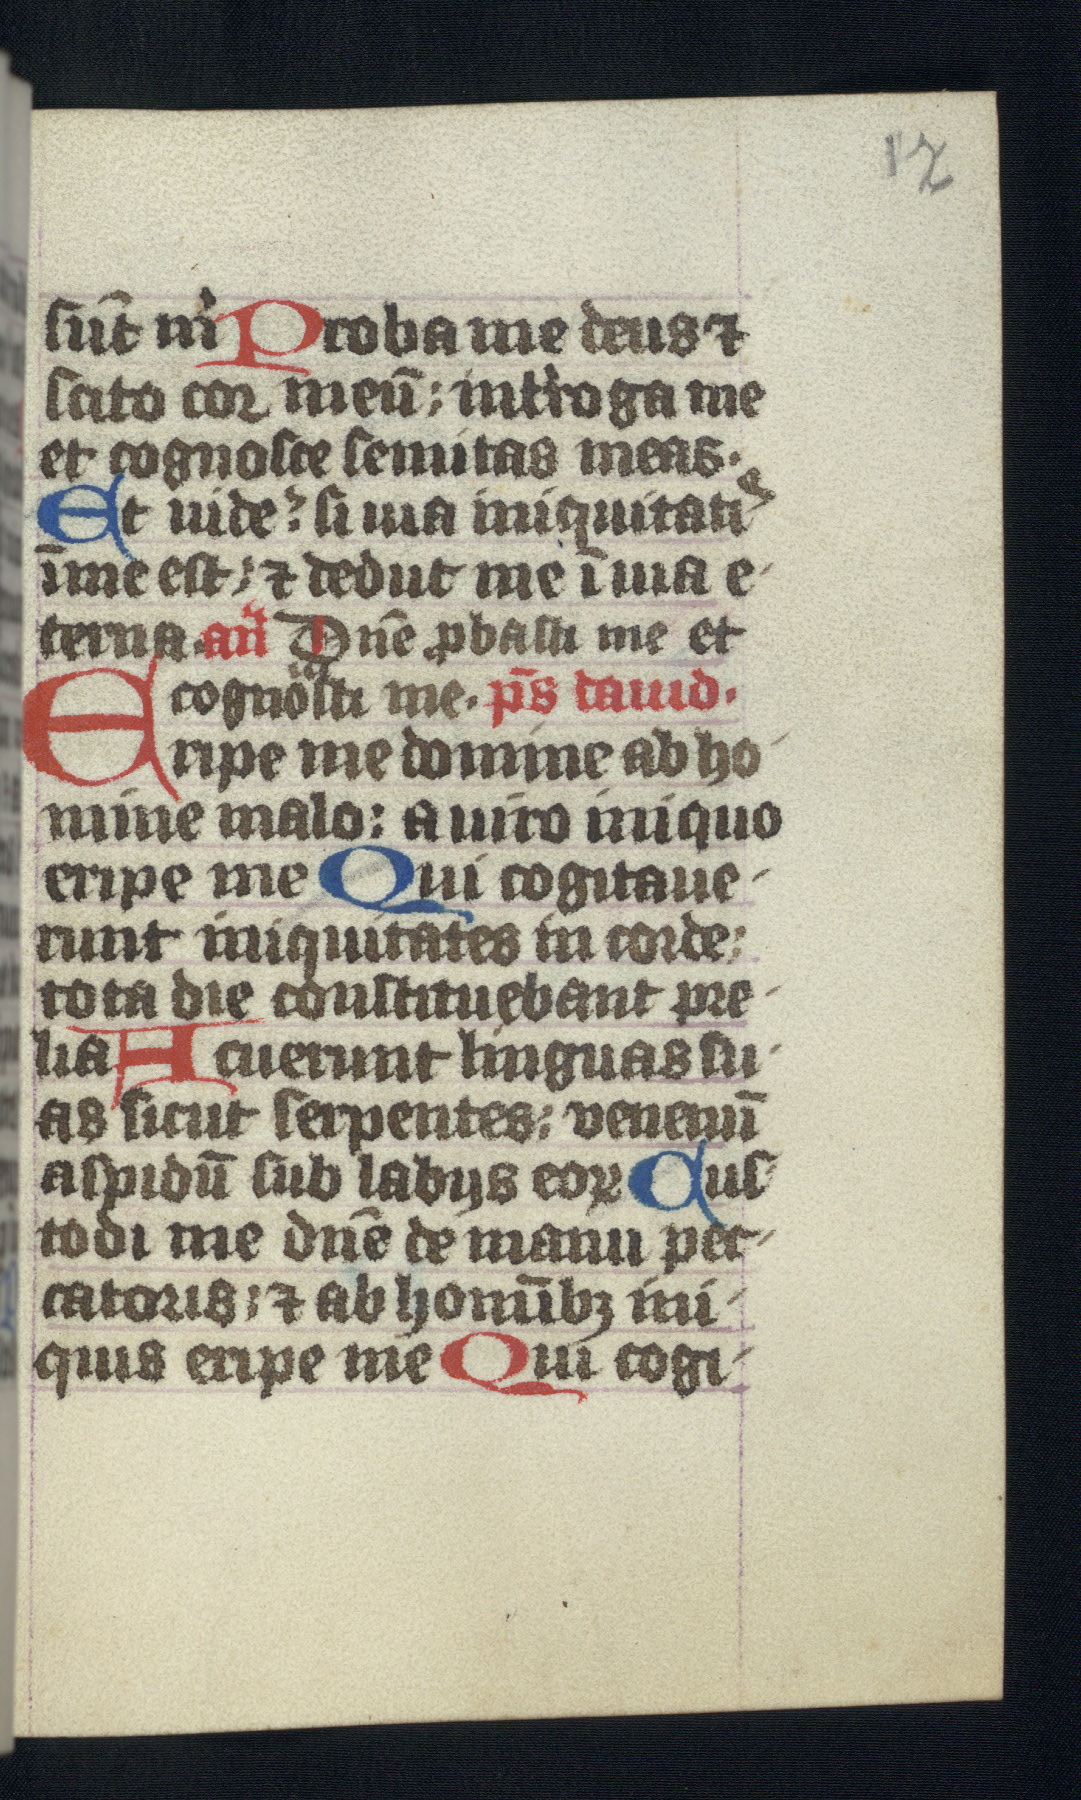 12
sūt m̍ Proba me deus ⁊
scito cor meū: int̍roga me
et cognosce semitas meas.
Et uide: si uia iniquitatꝭ
ī me est: ⁊ deduc me ī uia e-
terna. an̄ Dn̄e ꝓbasti me et
cognouisti me. ps̄ dauid.
Eripe me domine ab ho-
mine malo: a uiro iniquo
eripe me Qui cogitaue-
runt iniquitates in corde:
tota die constituebant pre-
lia Acuerunt linguas su-
as sicut serpentes: venenū
aspidū sub labijs eoꝝ Cus-
todi me dn̄e de manu pec-
catoris: ⁊ ab homīibꝫ ini-
quis eripe me Qui cogi-